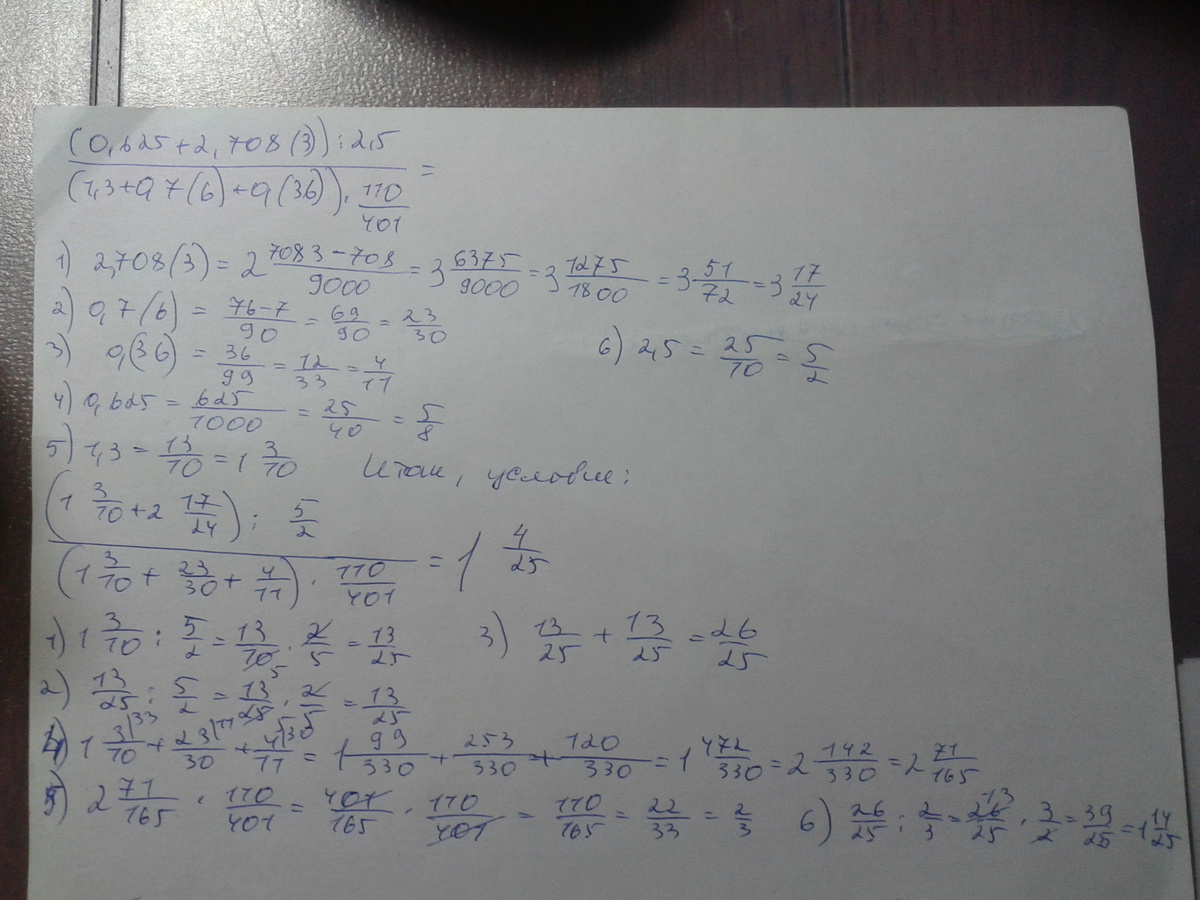 (0,625+2,708(3)):2,5
(1,3+0,7(6)+0,(36))·110/401 =
1) 2,708(3) = 2 7083-708/9000 = 3 6375/9000 = 3 1275/1800 = 3 51/72 = 3 17/24
2) 0,7(6) = 76-7/90 = 69/90 = 23/30
3) 0,(36) = 36/99 = 12/33 = 4/11
6) 2,5 = 25/10 = 5/2
4) 0,625 = 625/1000 = 25/40 = 5/8
5) 1,3 = 13/10 = 1 3/10
Итак, условие:
(1 3/10 + 2 17/24) : 5/2
(1 3/10 + 23/30 + 4/11) · 110/401 = 1 4/25
1) 1 3/10 : 5/2 = 13/10 · 2/5 = 13/25
3) 13/25 + 13/25 = 26/25
2) 13/25 : 5/2 = 13/25 · 2/5 = 13/25
4) 1 3/10 + 23/30 + 4/11 = 1 99/330 + 253/330 + 120/330 = 1 472/330 = 2 142/330 = 2 71/165
5) 2 71/165 · 110/401 = 401/165 · 110/401 = 110/165 = 22/33 = 2/3
6) 26/25 : 2/3 = 26/25 · 3/2 = 39/25 = 1 14/25